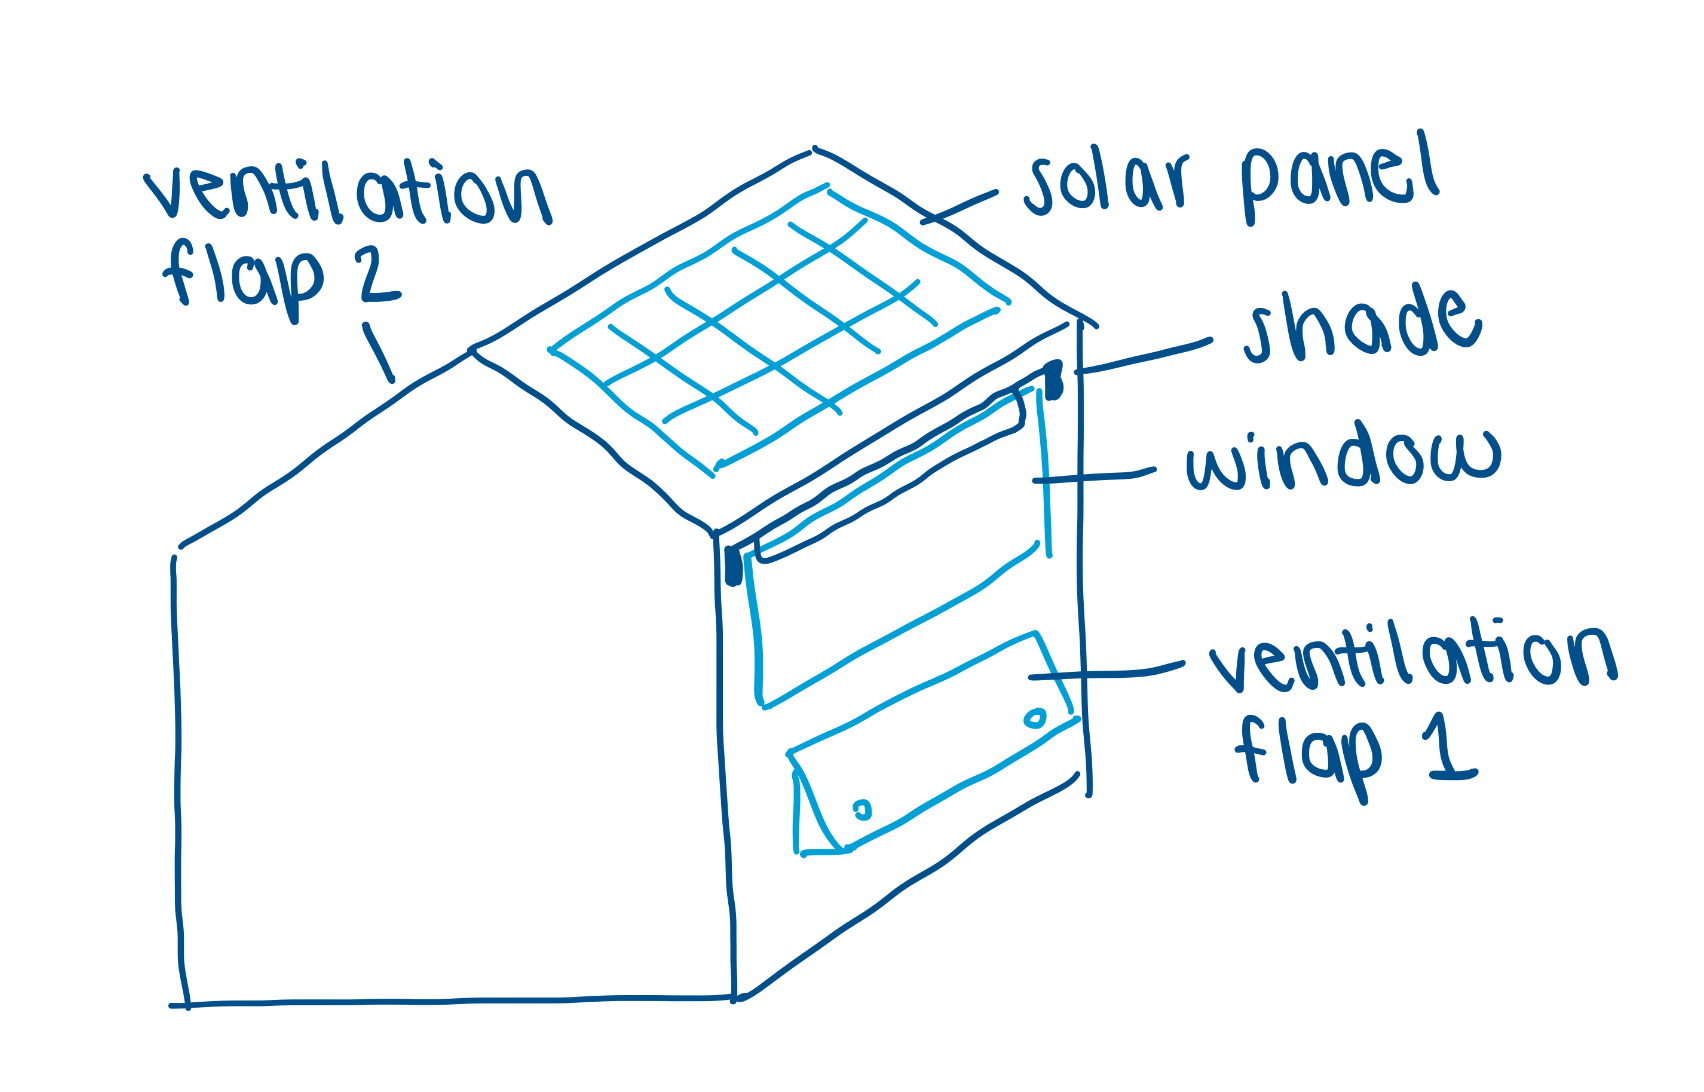 ventilation
flap 2
solar panel
shade
window
ventilation
flap 1